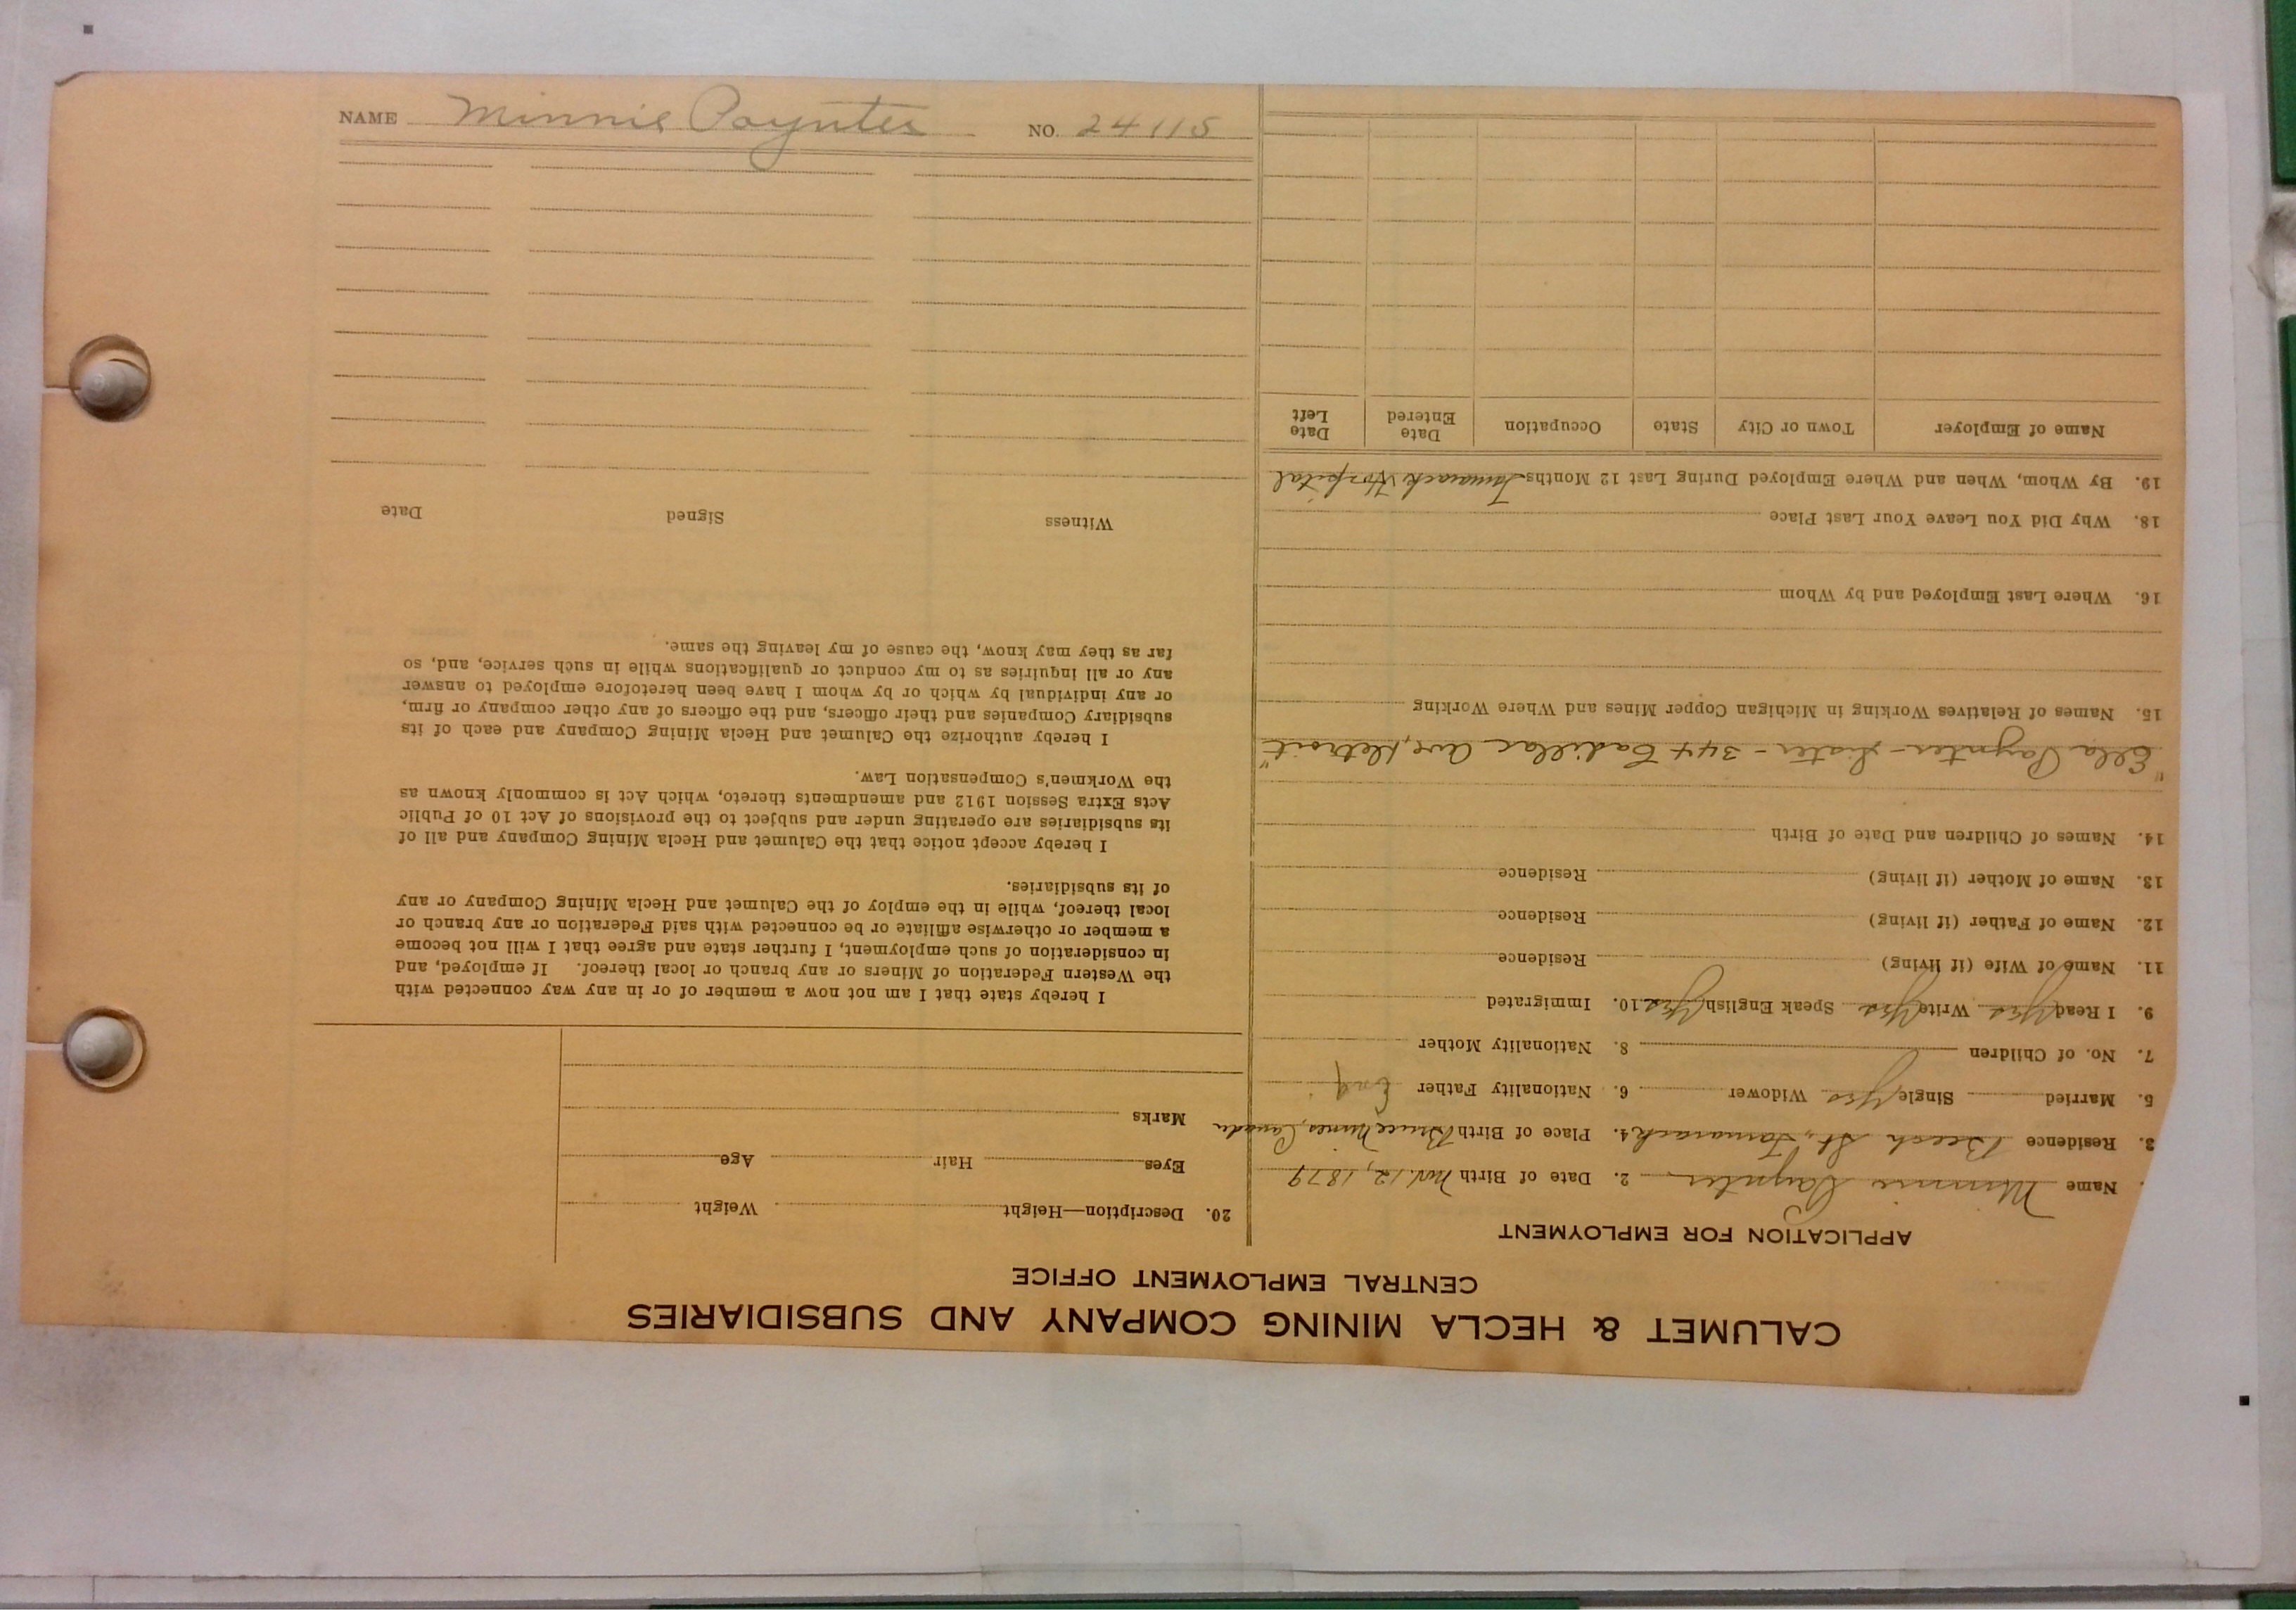 CALUMET & HECLA MINING COMPANY AND SUBSIDIARIES
CENTRAL EMPLOYMENT OFFICE
APPLICATION FOR EMPLOYMENT
Name Minnie Paynter 2. Date of Birth Nov. 12, 1879
3. Residence Beech St., Tamarack 4. Place of Birth Bruce Mines, Canada
5. Married Single Yes Widower 6. Nationality Father Eng
7. No. of Children 8. Nationality Mother
9. I Read Yes Write Yes Speak English Yes 10. Immigrated
11. Name of Wife (if living) Residence
12. Name of Father (if living) Residence
13. Name of Mother (if living) Residence
14. Names of Children and Date of Birth
"Ella Paynter - Sister - 344 Cadillac Ave, Detroit"
15. Names of Relatives Working in Michigan Copper Mines and Where Working
16. Where Last Employed and by Whom
18. Why Did You Leave Your Last Place
19. By Whom, When and Where Employed During Last 12 Months Tamarack Hospital
Name of Employer Town or City State Occupation Date Entered Date Left
20. Description—Height Weight
Eyes Hair Age
Marks
I hereby state that I am not now a member of or in any way connected with
the Western Federation of Miners or any branch or local thereof. If employed, and
in consideration of such employment, I further state and agree that I will not become
a member or otherwise affiliate or be connected with said Federation or any branch or
local thereof, while in the employ of the Calumet and Hecla Mining Company or any
of its subsidiaries.
I hereby accept notice that the Calumet and Hecla Mining Company and all of
its subsidiaries are operating under and subject to the provisions of Act 10 of Public
Acts Extra Session 1912 and amendments thereto, which Act is commonly known as
the Workmen's Compensation Law.
I hereby authorize the Calumet and Hecla Mining Company and each of its
subsidiary Companies and their officers, and the officers of any other company or firm,
or any individual by which or by whom I have been heretofore employed to answer
any or all inquiries as to my conduct or qualifications while in such service, and, so
far as they may know, the cause of my leaving the same.
Witness Signed Date
NAME Minnie Paynter NO. 24115